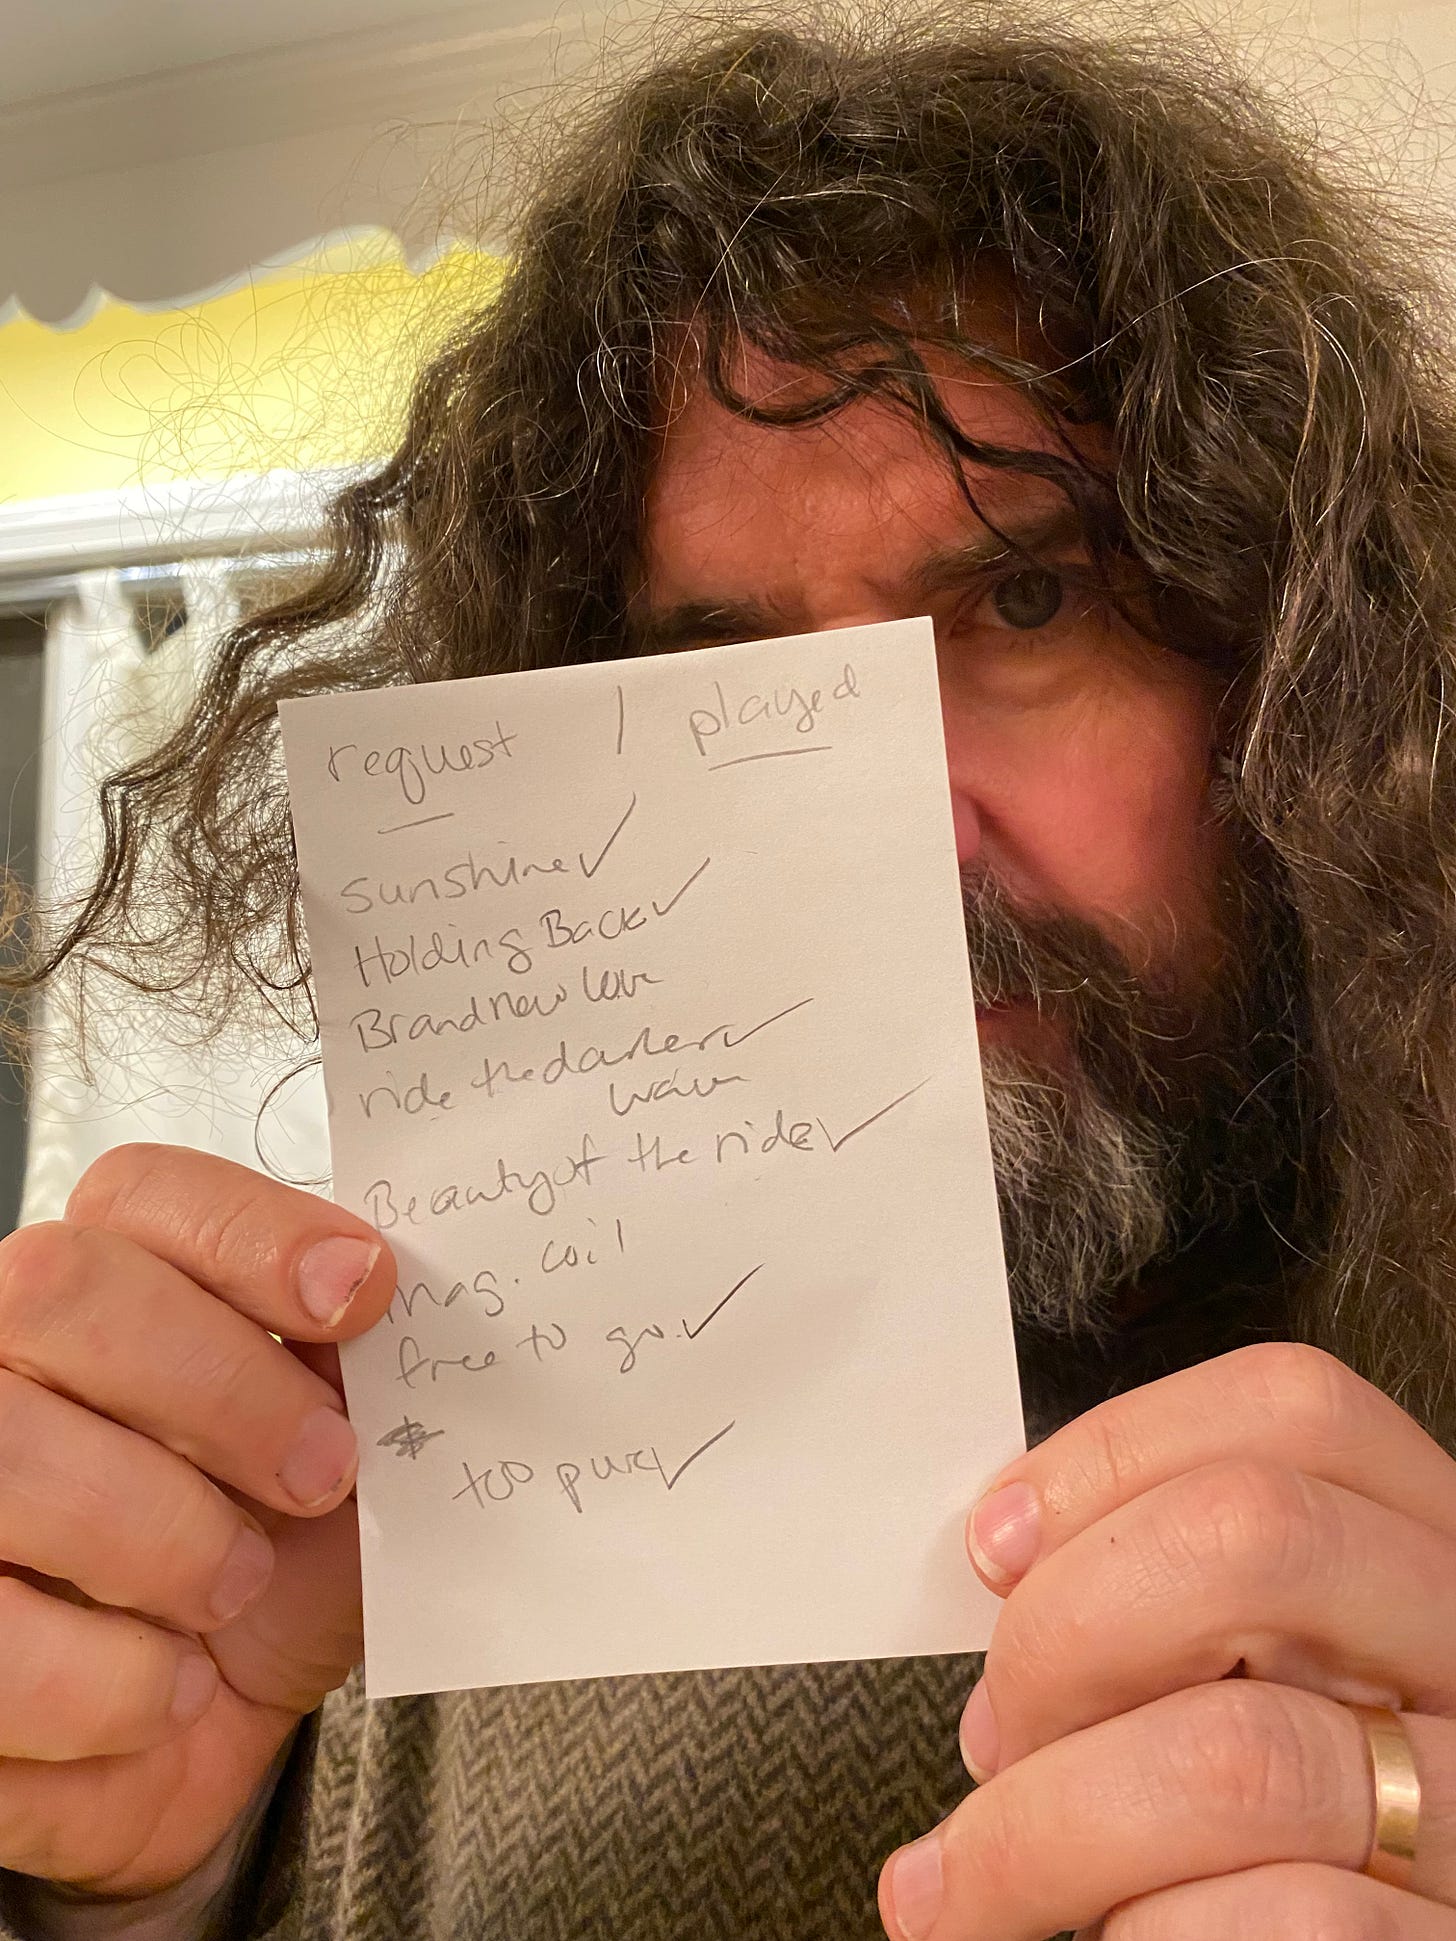 request / played
sunshine ✓
Holding Back ✓
Brand new love
ride the darker ✓
wave
Beauty of the ride ✓
mag. coil
free to go. ✓
too pure ✓